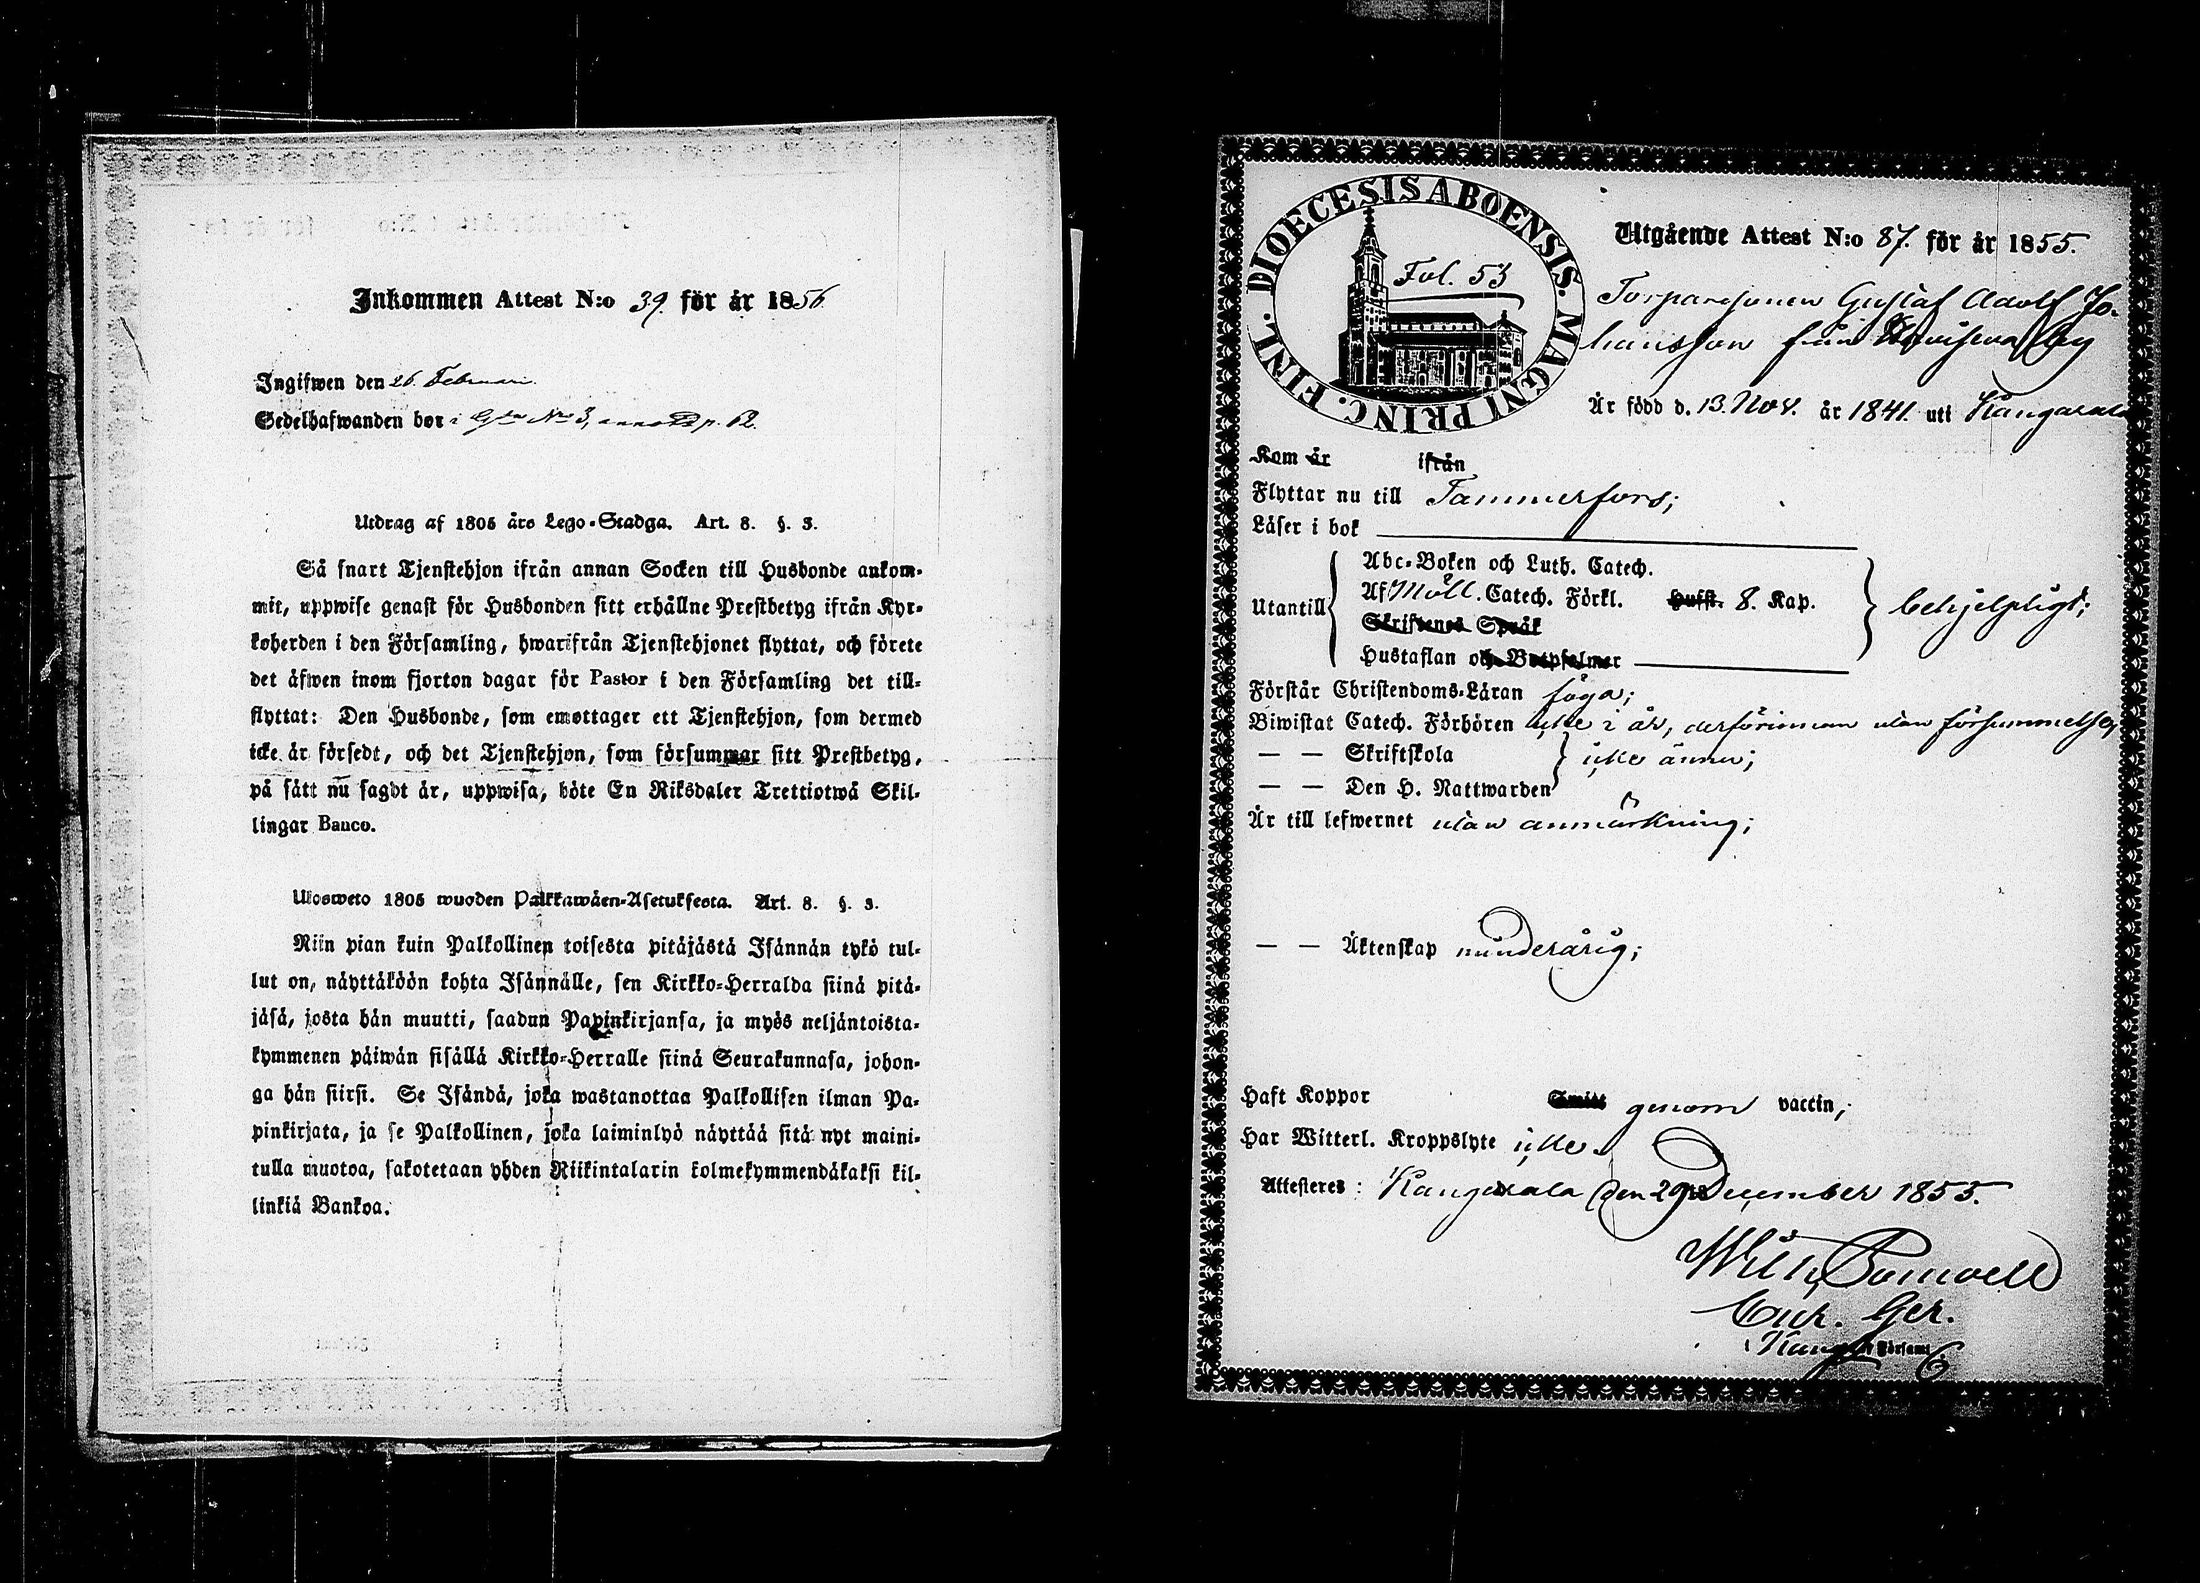 Inkommen Attest N:o 39. för år 1856
Ingifwen den 26. Februari.
Sedelhafwanden bor i Gdn No 3, p. 62.
Utdrag af 1805 års Lego-Stadga. Art. 8. §. 3.
Så snart Tjenstehjon ifrån annan Socken till Husbonde ankom-
mit, uppwise genast för Husbonden sitt erhållne Prestbetyg ifrån Kyr-
koherden i den Församling, hwarifrån Tjenstehjonet flyttat, och förete
det äfwen inom fjorton dagar för Pastor i den Församling det till-
flyttat: Den Husbonde, som emottager ett Tjenstehjon, som dermed
icke är försedt, och det Tjenstehjon, som försummar sitt Prestbetyg,
på sätt nu sagdt är, uppwisa, böte En Riksdaler Trettiotwå Skil-
lingar Banco.
Ulosweto 1805 wuoden Palkkawäen-Asetuksesta. Art. 8. §. 3.
Niin pian kuin Palkollinen toisesta pitäjästä Isännän tykö tul-
lut on, näyttäköön kohta Isännälle, sen Kirkko-Herralda siinä pitä-
jäsä, josta hän muutti, saadun Papinkirjansa, ja myös neljäntoista-
kymmenen päiwän sisällä Kirkko-Herralle siinä Seurakunnasa, johon-
ga hän siirsi. Se Isändä, joka wastanottaa Palkollisen ilman Pa-
pinkirjata, ja se Palkollinen, joka laiminlyö näyttää sitä nyt maini-
tulla muotoa, sakotetaan yhden Riikintalarin kolmekymmendäkaksi kil-
linkiä Bankoa.
DIOECESIS ABOENSIS. MAGNI PRINC. FINL.
Fol. 53
Utgående Attest N:o 87. för år 1855.
Torparesonen Gustaf Adolf Jo-
hansson från by
Är född d. 13. Nov. år 1841. uti Kangasala
Kom år ifrån
Flyttar nu till Tammerfors;
Läser i bok
Utantill
Abc-Boken och Luth. Catech.
Af Möll. Catech. Förkl. Hufst. 8. Kap.
Skriftenes Språk
Hustaflan och Botpsalmer
behjelpligt;
Förstår Christendoms-Läran föga;
Biwistat Catech. Förhören icke i år, derförinnan utan försummelse;
— — Skriftskola
icke ännu;
— — Den H. Nattwarden
Är till lefwernet utan anmärkning;
— — Äktenskap minderårig;
Haft Koppor Smitt genom vaccin;
Har Witterl. Kroppslyte icke.
Attesteres: Kangasala den 29 December 1855.
Wilh. Bomvell
Cur. Ger.
Kang. Församl.